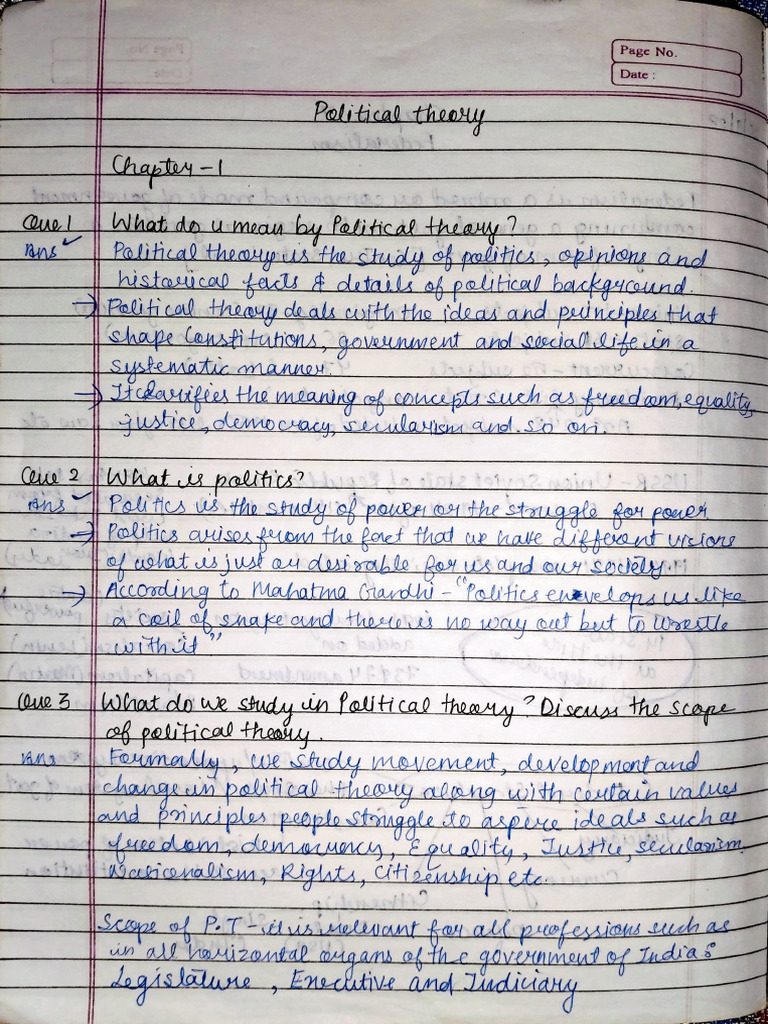 Page No.
Date :
Political theory
Chapter - 1
Que 1 What do u mean by Political theory?
Ans Political theory is the study of politics, opinions and
historical facts & details of political background.
→ Political theory deals with the ideas and principles that
shape Constitutions, government and social life in a
systematic manner.
→ It clarifies the meaning of concepts such as freedom, equality,
justice, democracy, secularism and so on.
Que 2 What is politics?
Ans Politics is the study of power or the struggle for power
→ Politics arises from the fact that we have different visions
of what is just an desirable for us and our society.
→ According to Mahatma Gandhi - "Politics envelops us like
a coil of snake and there is no way out but to wrestle
with it"
Que 3 What do we study in Political theory? Discuss the scope
of political theory.
Ans Formally, we study movement, development and
change in political theory along with certain values
and principles people struggle to aspire ideals such as
freedom, democracy, Equality, Justice, secularism
Nationalism, Rights, Citizenship etc.
Scope of P.T - it is relevant for all professions such as
in all horizontal organs of the government of India :
Legislature, Executive and Judiciary